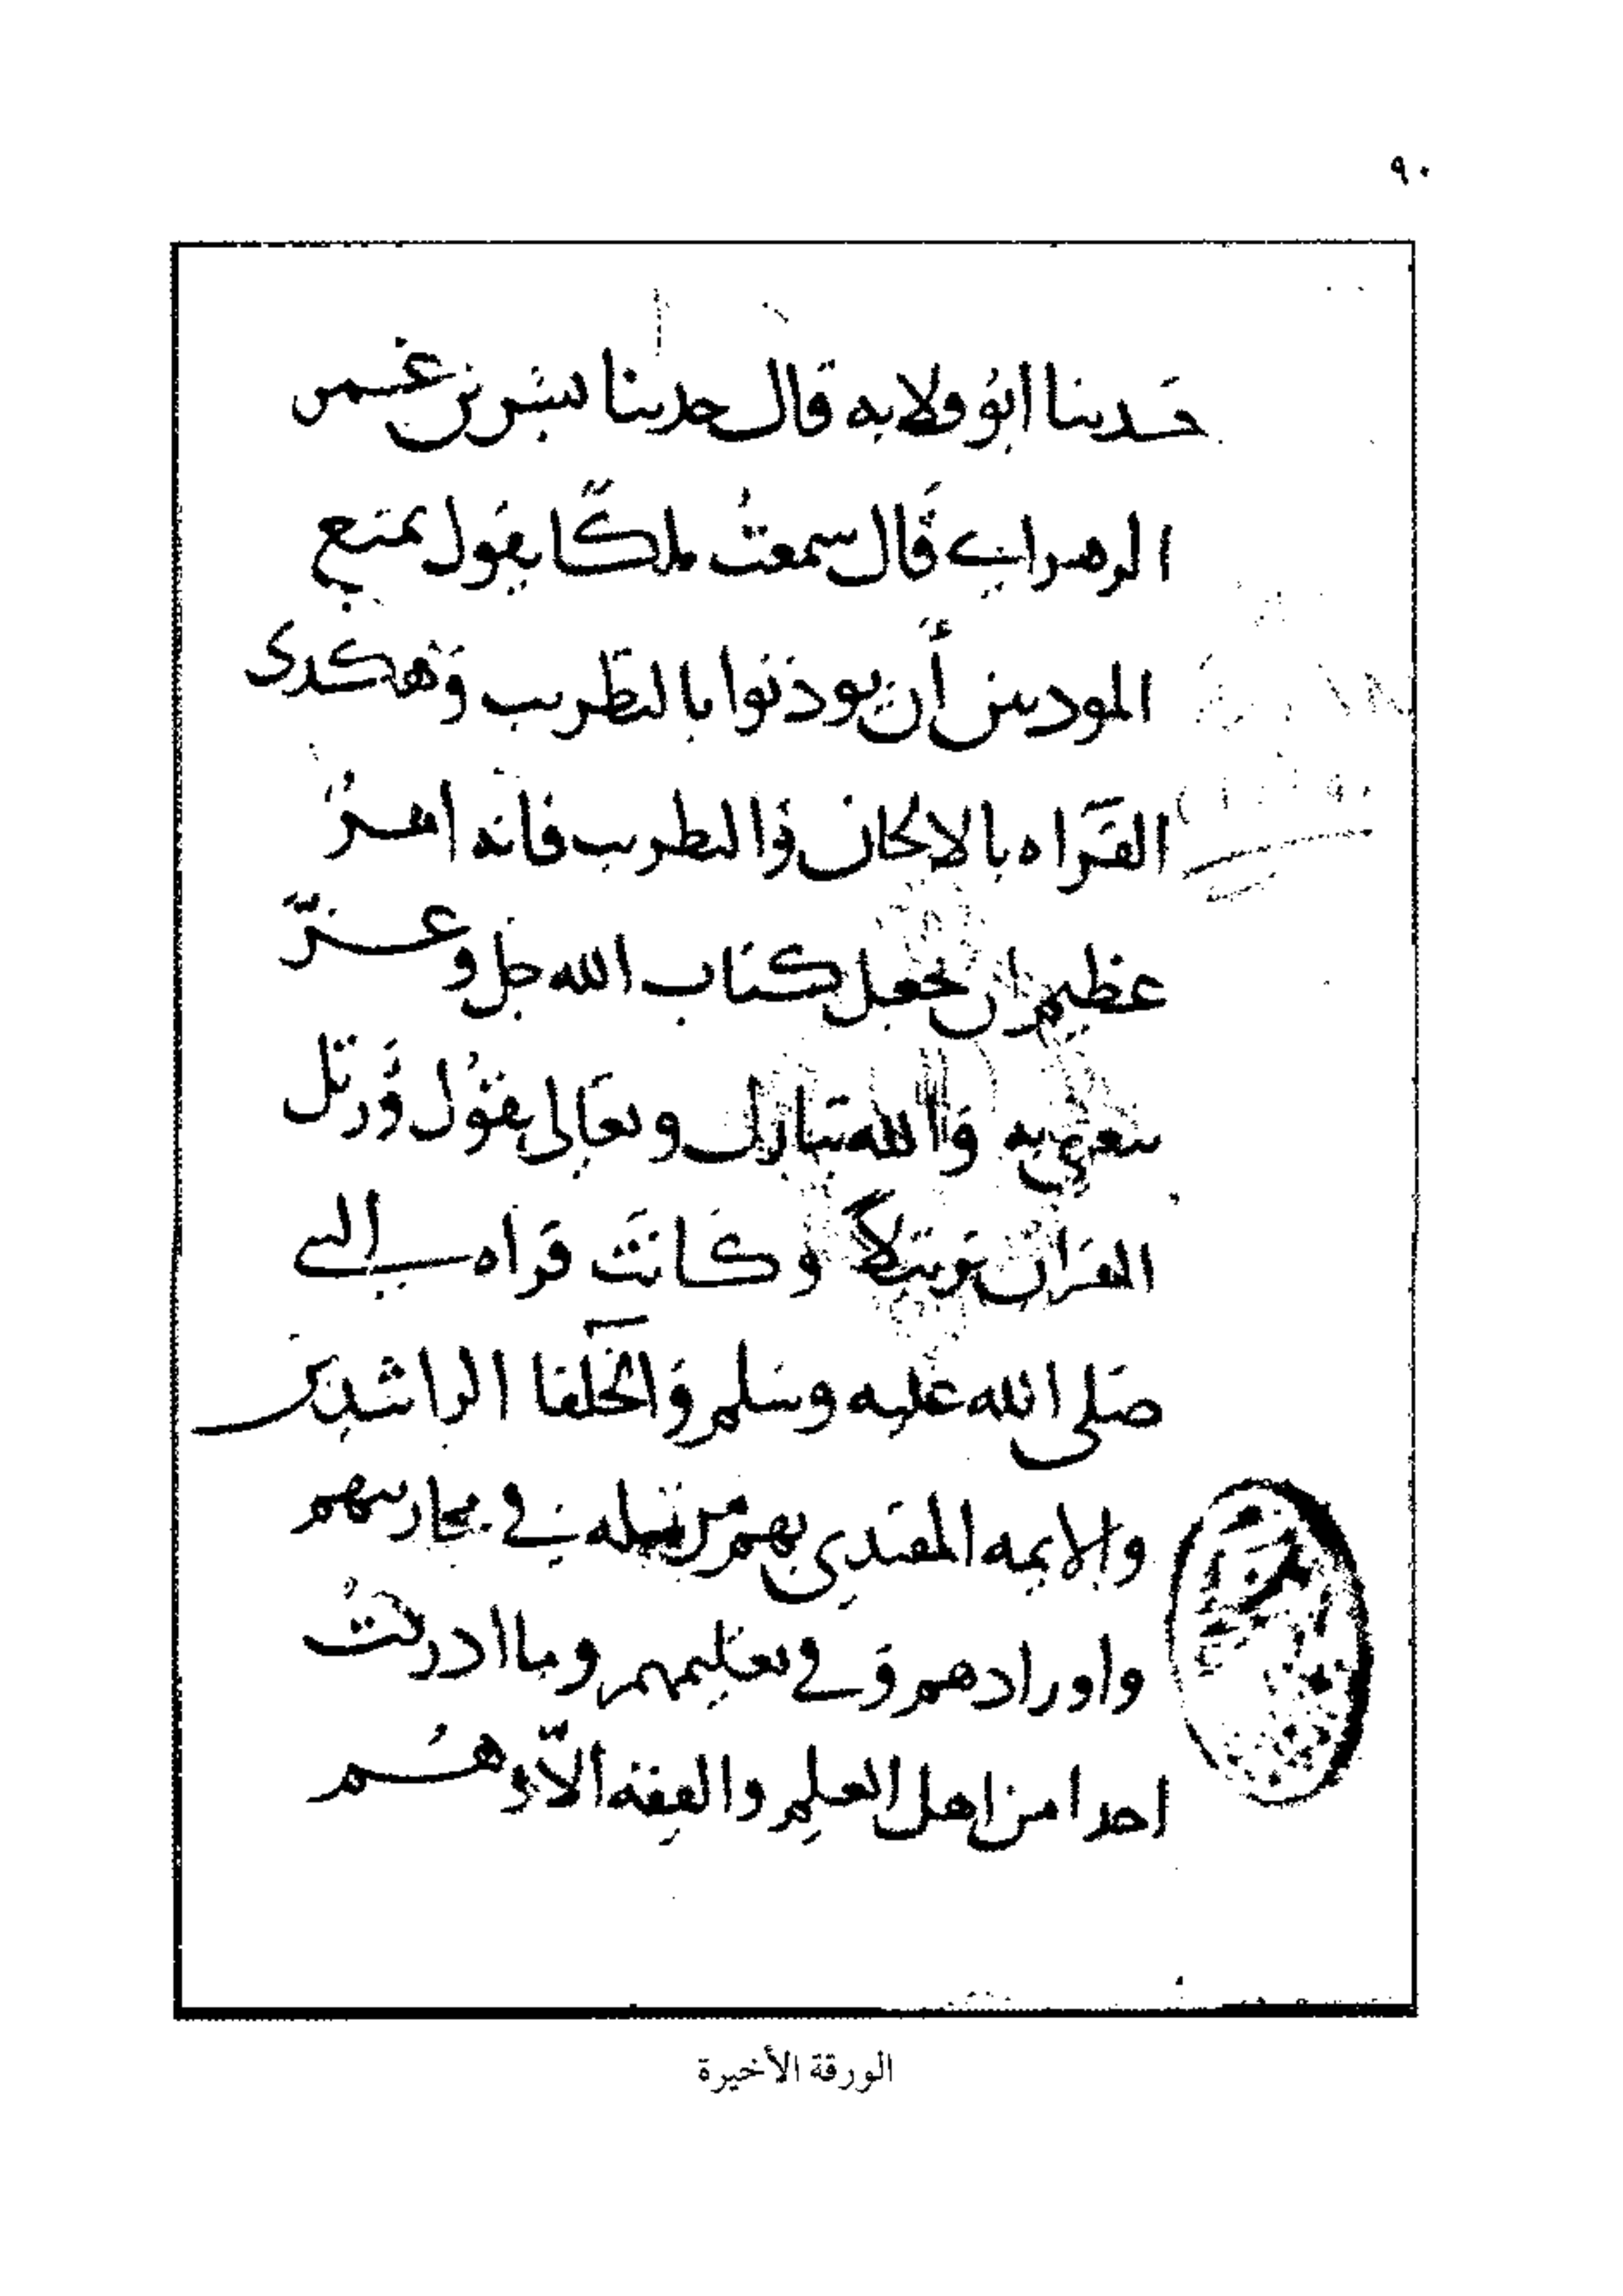 ٩٠
حدثنا ابو قلابه قال حدثنا بشر بن عمر
الزهراني قال سمعتُ ملكًا يقول يمنع
الموذنين أن يوذنوا بالتطريب وهكدى
القراه بالالحان والتطريب فانه امرٌ
عظيم ان يجعل كتاب الله جل وعزّ
يتغنى به والله تبارك وتعالى يقول ورتل
القران ترتيلاً وكانت قراه النبي
صلى الله عليه وسلم والخلفا الراشدين
والايمه المقتدي بهم من قبله في محاريبهم
واورادهم وفي تعليمهم وما ادركتُ
احدا من اهل العلم والفقه الّا وهُم
الورقة الأخيرة